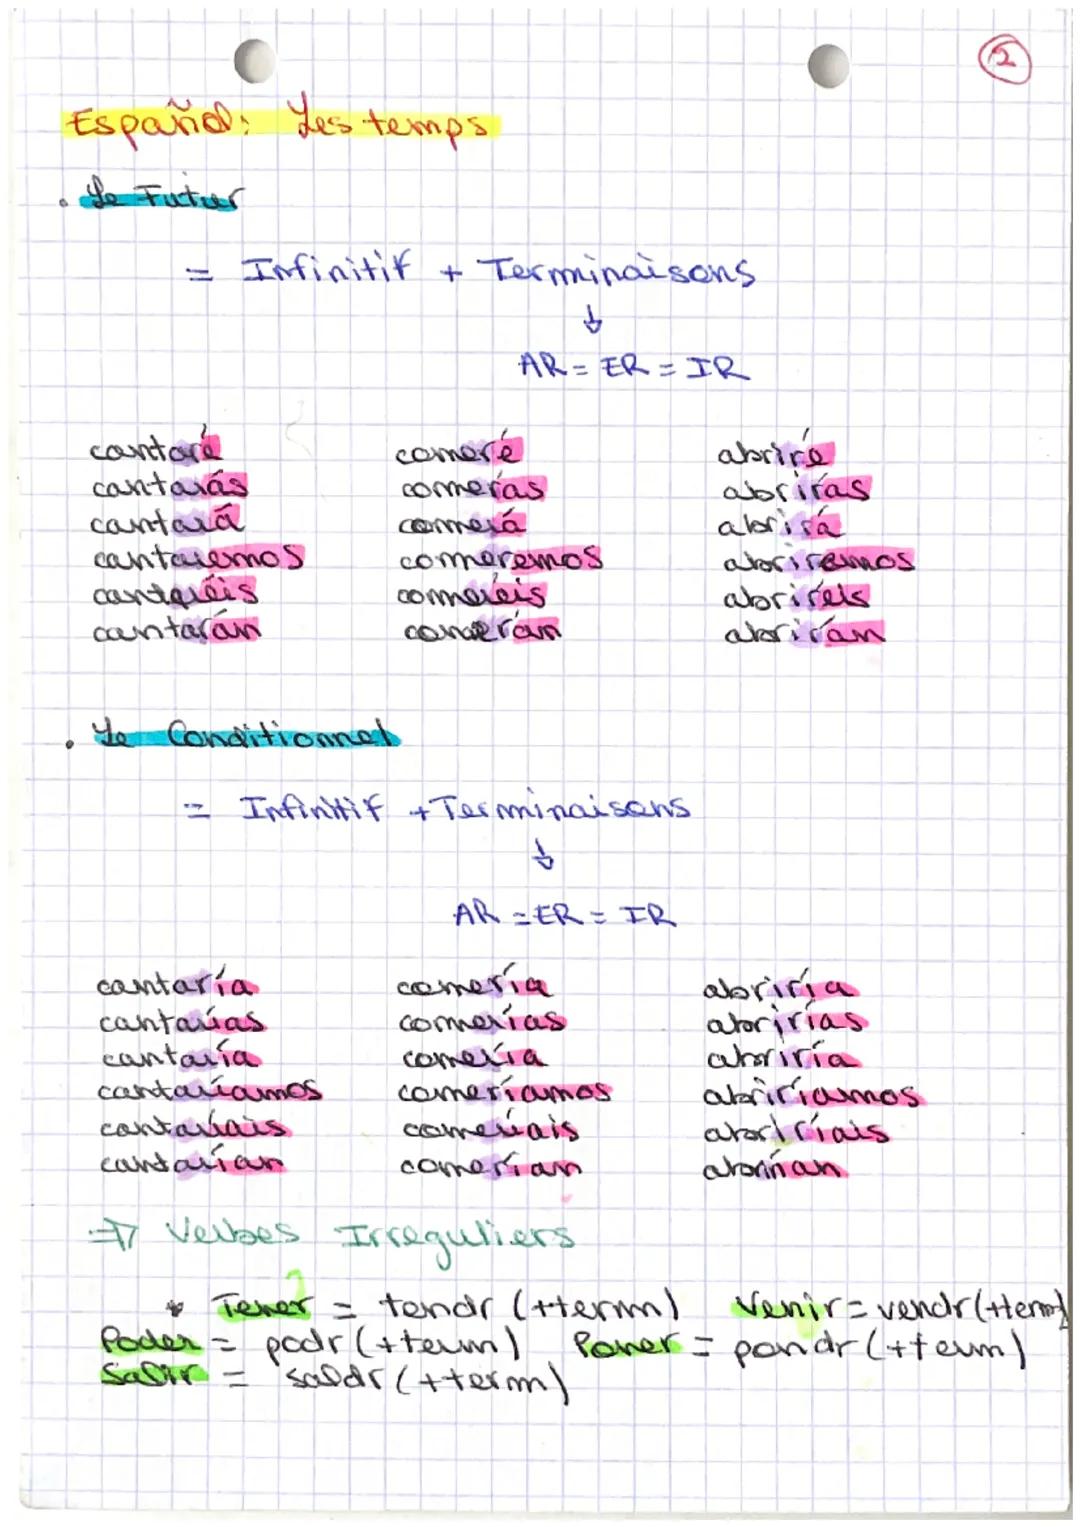 2
Español: Les temps
• Le Futur
= Infinitif + Terminaisons
↓
AR = ER = IR
cantaré comeré abriré
cantarás comeras abriras
cantará comerá abrirá
cantaremos comeremos abriremos
cantaréis comeréis abrireis
cantarán comerán abrirán
• Le Conditionnel
= Infinitif + Terminaisons
↓
AR = ER = IR
cantaría comería abriría
cantarías comerías abrirías
cantaría comería abriría
cantaríamos comeríamos abriríamos
cantaríais comeríais abriríais
cantarían comerían abrirían
=> Verbes Irreguliers
* Tener = tendr (+term) Venir = vendr (+term)
Poder = podr (+term) Poner = pondr (+term)
Salir = saldr (+term)